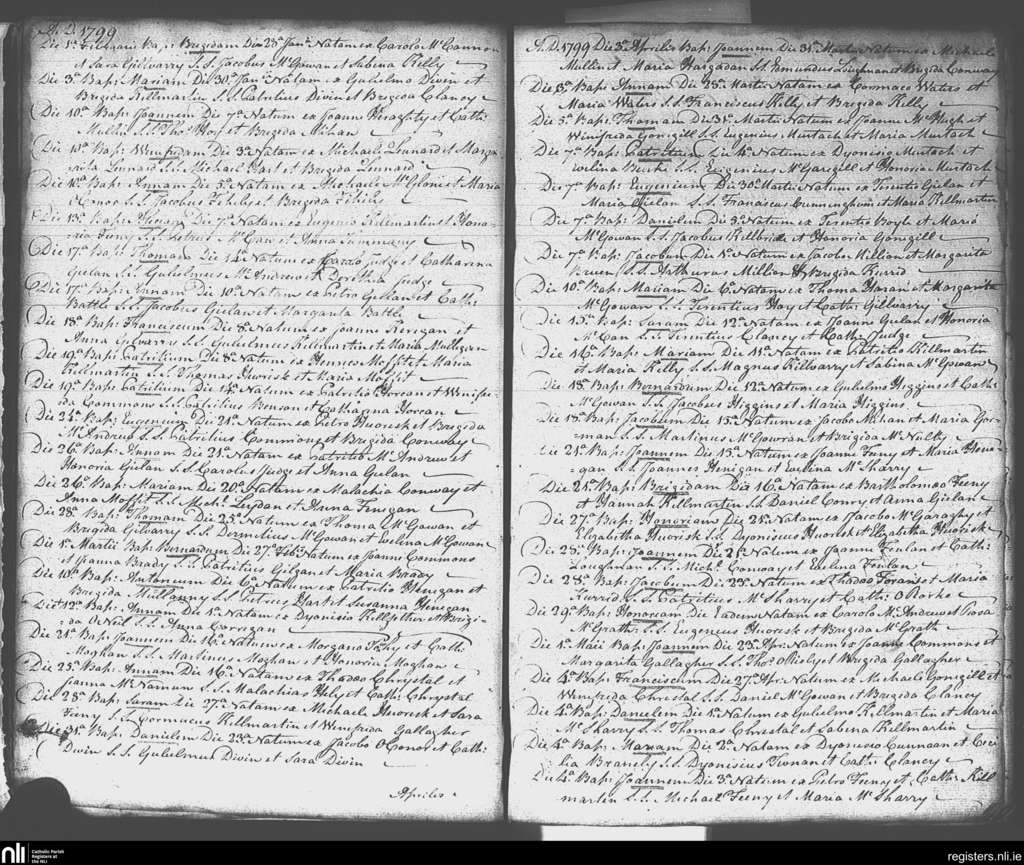 A. D. 1799
Die 1a Februarii Bap: Brigidam Die 28a Jan: Natam ex Carolo McGannon
et Sara Gillvarry S.S. Jacobus McGowan et Sabina Kelly
Die 3a Bap: Mariam Die 30a Jan: Natam ex Gulielmo Divin et
Brigida Killmartin S.S. Patritius Divin et Brigida Clancy
Die 10a Bap: Joannem Die 7a Natum ex Joanne Heraghty et Cath:
S.S. Thos Hoy et Brigida Mihan
Die 10a Bap: Winifredam Die 3a Natam ex Michaele Linnard et Marga-
rita Linnard S.S. Michael Hart et Brigida Linnard
Die Bap: Annam Die 5a Natam ex Michaele McGlone et Maria
OConor S.S. Jacobus et Brigida
Die 15a Bap: Die 7a Natam ex Eugenio Killmartin et Hono-
ria Feeny S.S. Petrus McCan et Anna Timmany
Die 17a Bap: Thomam Die 14a Natum ex Judge et Catharina
Gielan S.S. Gulielmus McAndrew et Dorothia Judge
Die 17a Bap: Annam Die 10a Natam ex Petro Gielan et Cath:
Battle S.S. Jacobus Gielan et Margarita Battle
Die 18a Bap: Franciscum Die 8a Natum ex Joanne Kerigan et
Anna Gilvarry S.S. Gulielmus Killmartin et Maria Mulligan
Die 19a Bap: Patritium Die 8a Natum ex Moffit et Maria
Killmartin S.S. Thomas Huorisk et Maria Moffit
Die 19a Bap: Patritium Die 14a Natum ex Patritio Horean et Winifri-
da Commons S.S. Patritius Benson et Catharina Horean
Die 24a Bap: Eugenium Die 21a Natum ex Petro Huorisk et Brigida
McAndrew S.S. Patritius Commons et Brigida Conway
Die 26a Bap: Annam Die 21a Natam ex Patritio McAndrew et
Honoria Gielan S.S. Carolus Judge et Anna Gielan
Die 26a Bap: Mariam Die 20a Natam ex Malachia Conway et
Anna Moffit S.S. Mich: Leydan et Anna Finegan
Die 28a Bap: Thomam Die 25a Natum ex Thoma McGowan et
Brigida Gilvarry S.S. Dermitius McGowan et Evelina McGowan
Die 1a Martii Bap: Bernardum Die 27a Feb: Natum ex Joanne Commons
et Joanna Brady S.S. Patritius Gilgan et Maria Brady
Die 10a Bap: Antonium Die 6a Natum ex Patritio Henegan et
Brigida S.S. Petrus Hart et Susanna Henegan
Die 12a Bap: Annam Die 1a Natam ex Dyonisio Killfether et Brigi-
da ONeil S.S. Anna Corrigan
Die 21a Bap: Joannem Die 16a Natum ex Morgano Fehy et Cath:
Moghan S.S. Martinus Moghan et Honoria Moghan
Die 25a Bap: Annam Die 16a Natam ex Thadeo Chrystal et
Joanna McNamara S.S. Malachias Fehy et Cath: Chrystal
Die 28a Bap: Saram Die 27a Natam ex Michaele Huorisk et Sara
Feeny S.S. Cormacus Killmartin et Winifrida Gallagher
Die 31a Bap: Danielem Die 23a Natum ex Jacobo OConor et Cath:
Divin S.S. Gulielmus Divin et Sara Divin
Aprilis
A. D. 1799 Die 3a Aprilis Bap: Joannem Die 31a Martii Natum ex Michaele
Mullin et Maria Hargadan S.S. Edmundus Loughnan et Brigida Conway
Die 5a Bap: Annam Die 25a Martii Natam ex Cormaco Waters et
Maria Waters S.S. Franciscus Kelly et Brigida Kelly
Die 5a Bap: Thomam Die 31a Martii Natum ex Joanne McHugh et
Winifrida Gonigill S.S. Eugenius Murtach et Maria Murtach
Die 7a Bap: Patritium Die 4a Natum ex Dyonisio Murtach et
Evelina Burke S.S. Eugenius McGarigill et Honoria Murtach
Die 7a Bap: Eugenium Die 30a Martii Natum ex Terentio Gielan et
Maria Gielan S.S. Franciscus Cunningham et Maria Killmartin
Die 7a Bap: Danielem Die 3a Natum ex Terentio Boyle et Maria
McGowan S.S. Jacobus Killbride et Honoria Gonigill
Die 7a Bap: Jacobum Die 1a Natum ex Jacobo Killon et Margarita
Bruen S.S. Millan et Brigida Kurrid
Die 10a Bap: Mariam Die 6a Natam ex Thoma Horan et Margarita
McGowan S.S. Terentius Hoy et Cath: Gillvarry
Die 15a Bap: Saram Die 12a Natam ex Joanne Gielan et Honoria
McCan S.S. Terentius Clancy et Cath: Judge
Die 16a Bap: Mariam Die 11a Natam ex Patritio Killmartin
et Maria Kelly S.S. Magnus Killvarry et Sabina McGowan
Die 18a Bap: Bernardum Die 12a Natum ex Gulielmo Higgins et Cath:
McGowan S.S. Jacobus Higgins et Maria Higgins
Die 18a Bap: Jacobum Die 15a Natum ex Jacobo Mihan et Maria Gor-
man S.S. Martinus McGowran et Brigida McNulty
Die 21a Bap: Joannem Die 15a Natum ex Joanne Feeny et Maria Hene-
gan S.S. Joannes Henigan et Evelina McSharry
Die 21a Bap: Brigidam Die 16a Natam ex Bartholomaeo Feeny
et Hannah Killmartin S.S. Daniel Conry et Anna Gielan
Die 27a Bap: Honoriam Die 21a Natam ex Jacobo McGaraghy et
Elizabetha Huorisk S.S. Dyonisius Huorisk et Elizabetha Huorisk
Die 28a Bap: Joannem Die 21a Natum ex Joanne Feulan et Cath:
Loughman S.S. Mich: Conway et Evelina Feulan
Die 28a Bap: Jacobum Die 23a Natum ex Thadeo Foran et Maria
Kurrid S.S. Patritius McSharry et Cath: ORorke
Die 29a Bap: Honoriam Die Eadem Natam ex Carolo McAndrew et Rosa
McGrath S.S. Eugenius Huorisk et Brigida McGrath
Die 1a Maii Bap: Joannem Die 23a Apr: Natum ex Joanne Commons et
Margarita Gallagher S.S. Thos ORiely et Brigida Gallagher
Die 4a Bap: Franciscum Die 27a Apr: Natum ex Michaele Gonigill et
Winifreda Chrestal S.S. Daniel McGowan et Brigida Clancy
Die 4a Bap: Danielem Die 1a Natum ex Gulielmo Killmartin et Maria
McSharry S.S. Thomas Chrestal et Sabena Killmartin
Die 4a Bap: Mariam Die 2a Natam ex Dyonisio Cunnaan et Ceci
lia Branely S.S. Dyonisius Tivnan et Cath: Clancy
Die 4a Bap: Joannem Die 3a Natum ex Petro Feeny et Cath: Kill
marten S.S. Michael Feeny et Maria McSharry
nli
Catholic Parish
Registers at
the NLI
registers.nli.ie